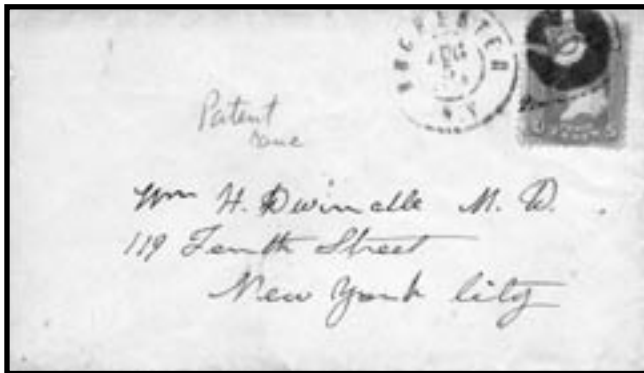 ROCHESTER
N.Y.
Patent
Wm H. Dwinelle M. D.
119 Tenth Street
New York City